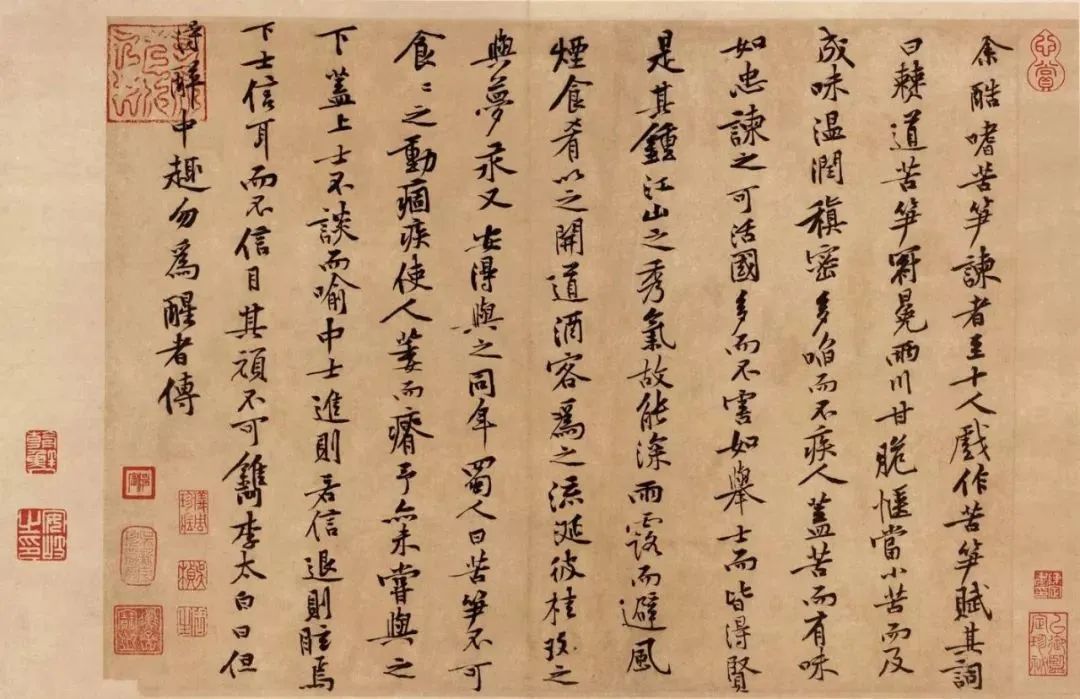 余酷嗜苦笋諫者至十人戲作苦笋賦其詞
曰僰道苦笋冠冕兩川甘脆愜當小苦而及
成味温潤稹密多啗而不疾人蓋苦而有味
如忠諫之可活國多而不害如舉士而皆得賢
是其鍾江山之秀氣故能深雨露而避風
煙食肴以之開道酒客爲之流涎彼桂玫之
與夢永又安得與之同年蜀人曰苦笋不可
食〻之動痼疾使人萎而瘠予亦未嘗與之
下蓋上士不談而喻中士進則若信退則眩焉
下士信耳而不信目其頑不可鐫李太白曰但
得醉中趣勿爲醒者傳
心賞
儀周珍藏
安岐之印